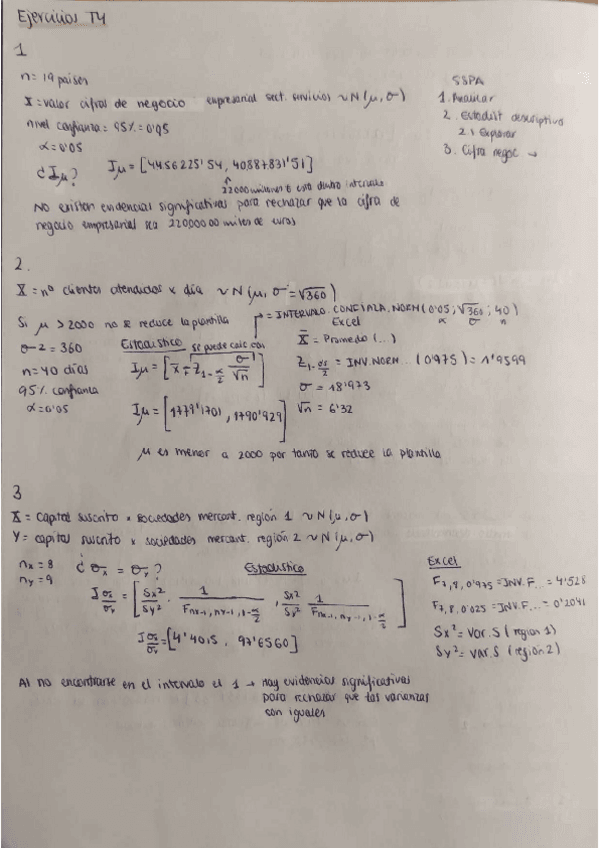 Ejercicios T4
1
n = 19 paises
X = valor cifras de negocio empresarial sect. servicios ~ N(μ, σ)
nivel confianza = 95% = 0'95
α = 0'05
¿Iμ? Iμ = [4456225'54, 40887831'51]
22000 millones € está dentro intervalo
No existen evidencias significativas para rechazar que la cifra de
negocio empresarial sea 22000000 miles de euros
SSPA
1. Analizar
2. Estadíst descriptivo
2.1 Explorar
3. Cifra negoc →
2.
X = nº clientes atendidos x día ~ N(μ, σ = √360)
Si μ > 2000 no se reduce la plantilla
σ2 = 360
n = 40 días
95% confianza
α = 0'05
= INTERVALO.CONFIANZA.NORM(0'05; √360; 40)
α σ n
Estadístico se puede calc con
Iμ = [x̄ ∓ Z1-α/2 σ/√n]
Iμ = [1779'1701, 1790'929]
Excel
X̄ = Promedio (...)
Z1-α/2 = INV.NORM... (0'975) = 1'9599
σ = 18'973
√n = 6'32
μ es menor a 2000 por tanto se reduce la plantilla
3
X = capital suscrito x sociedades mercant. región 1 ~ N(μ, σ)
Y = capital suscrito x sociedades mercant. región 2 ~ N(μ, σ)
nx = 8
ny = 9
¿σx = σy?
Estadístico
I σx/σy = [Sx²/Sy² · 1/Fnx-1, ny-1, 1-α/2, Sx²/Sy² 1/Fnx-1, ny-1, 1-α/2]
I σx/σy = [4'4015, 97'6560]
Excel
F7,8,0'975 = INV.F... = 4'528
F7,8,0'025 = INV.F... = 0'2041
Sx² = Var.S (region 1)
Sy² = Var.S (región 2)
Al no encontrarse en el intervalo el 1 → hay evidencias significativas
para rechazar que las varianzas
son iguales